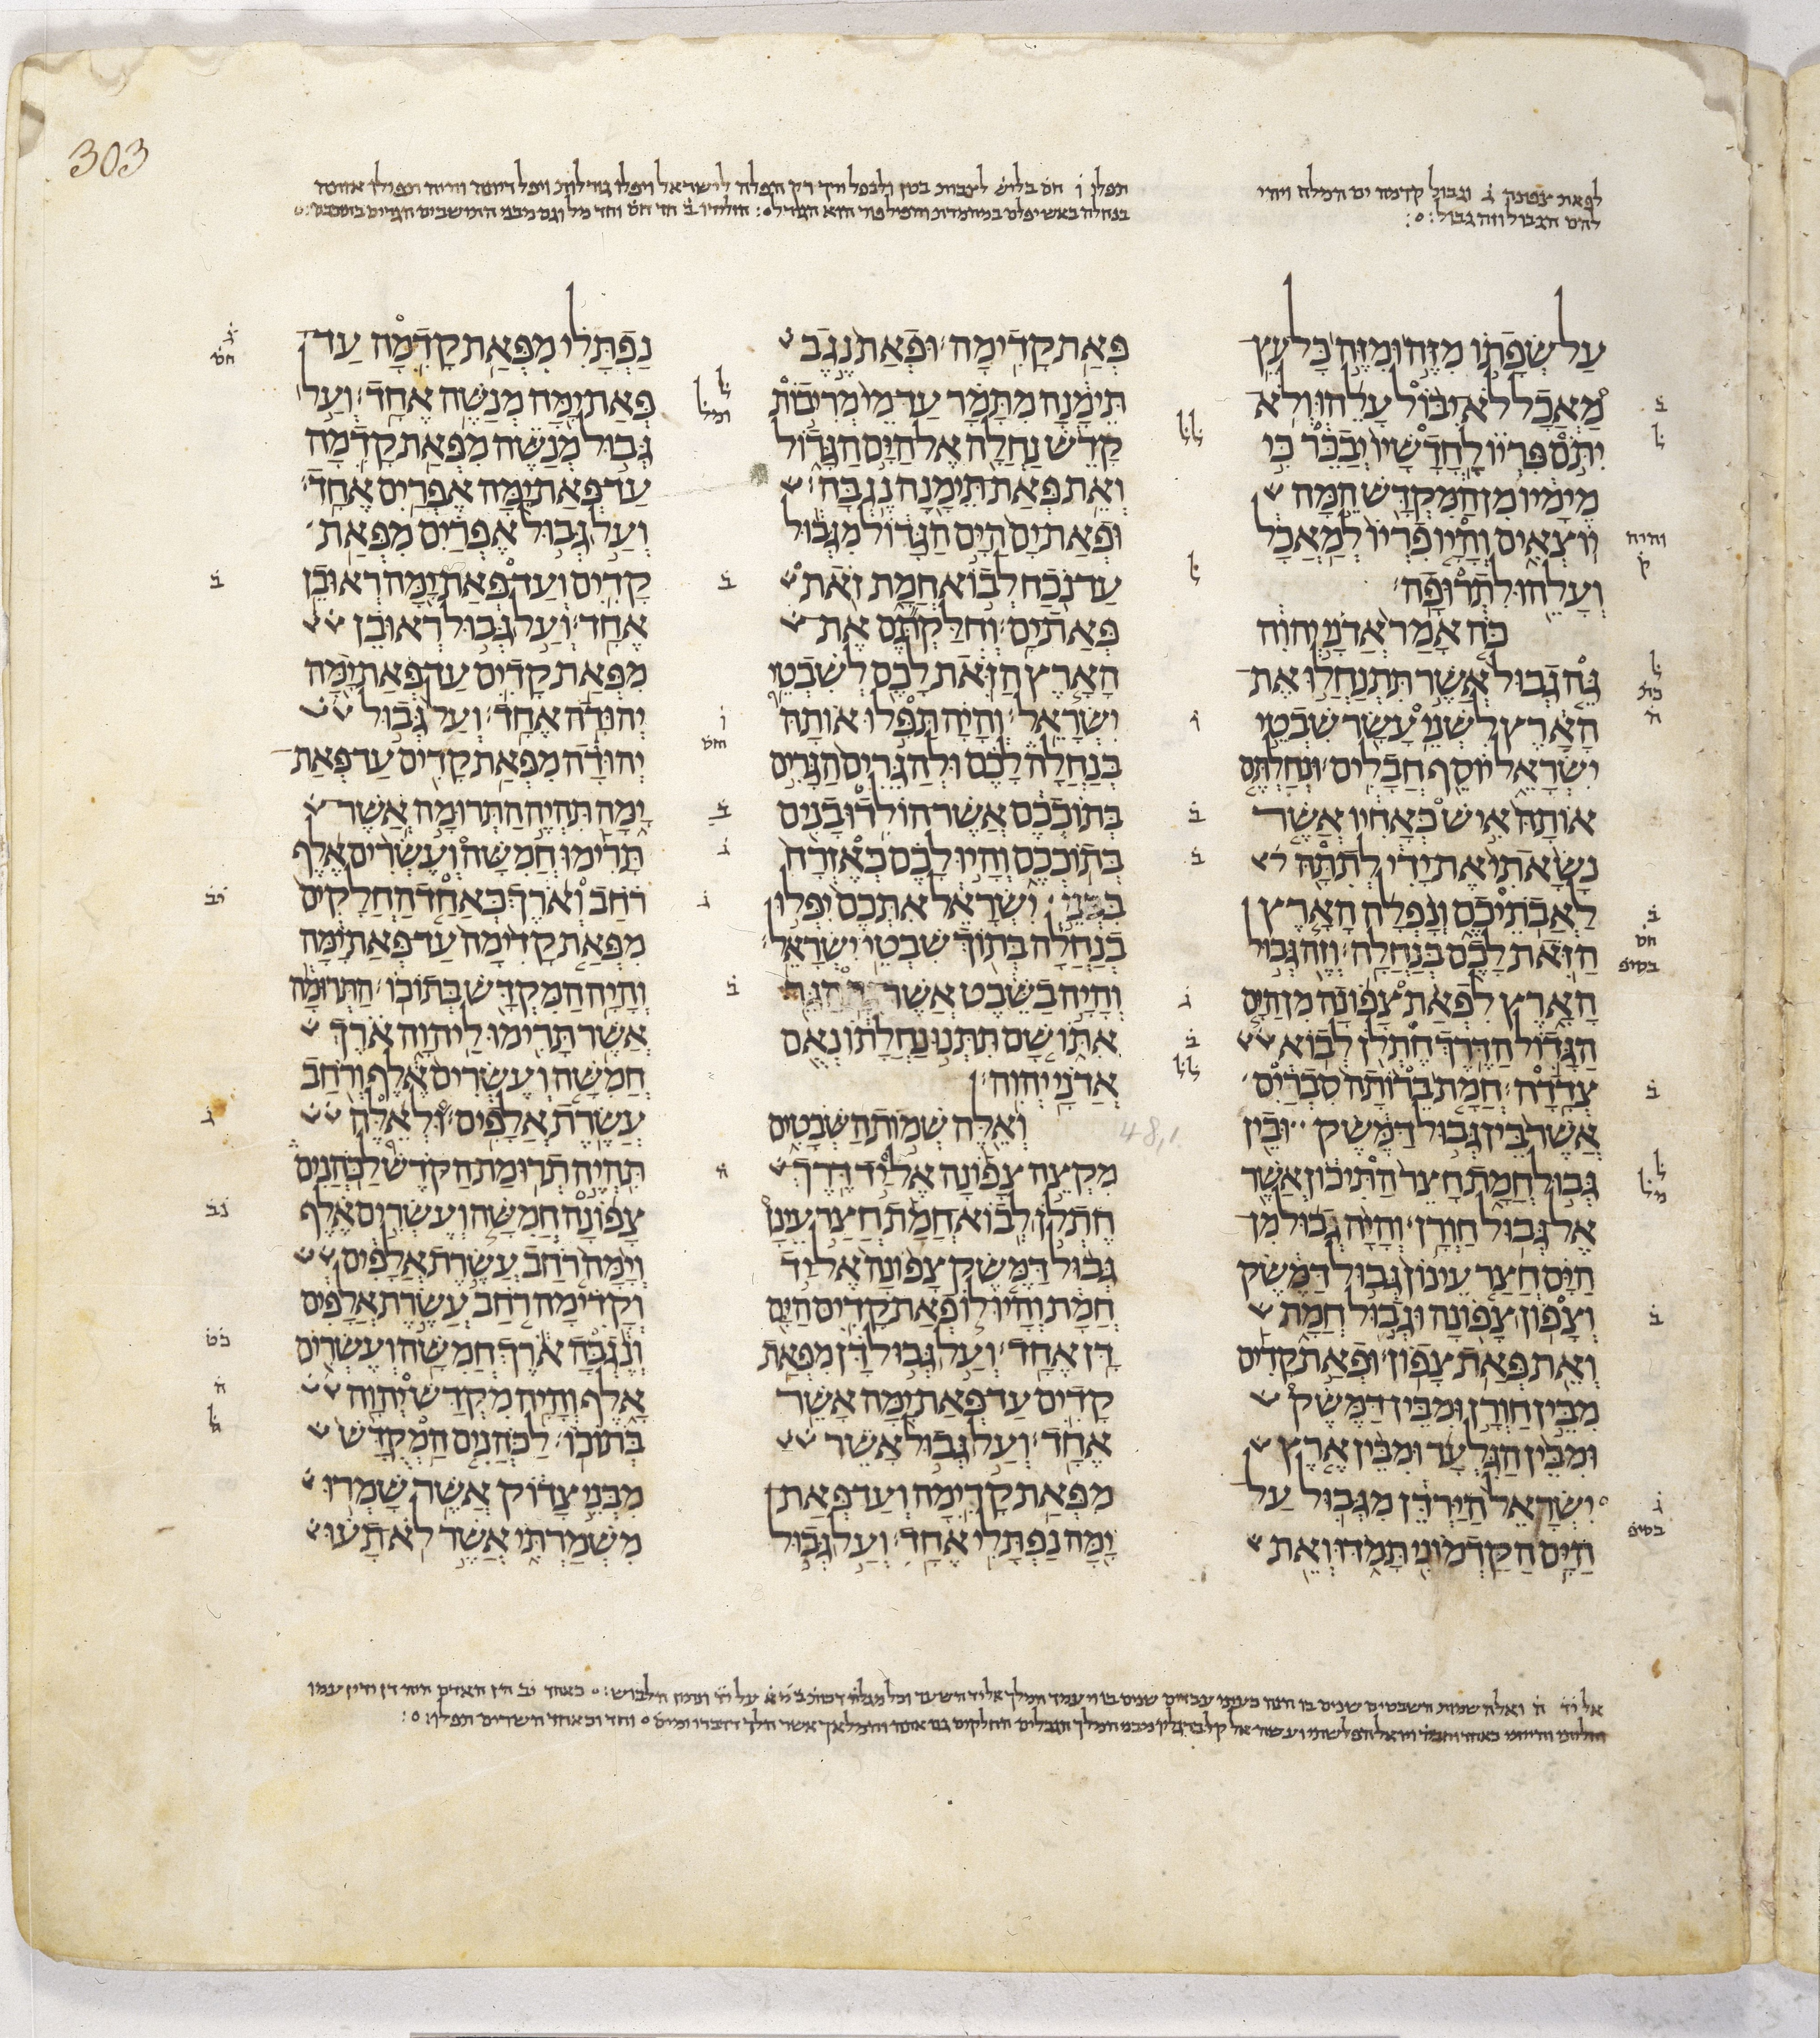 303
לפאת צפונה ג וגבול קדמה ים המלח ויהי
להם הגבול וזה גבול
על שפתו מזה ומזה כל עץ
מאכל לא יבול עלהו ולא
יתם פריו לחדשיו יבכר כי
מימיו מן המקדש המה
יוצאים והיו פריו למאכל
ועלהו לתרופה
כה אמר אדני יהוה
גה גבול אשר תתנחלו את
הארץ לשני עשר שבטי
ישראל יוסף חבלים ונחלתם
אותה איש כאחיו אשר
נשאתי את ידי לתתה
לאבתיכם ונפלה הארץ
הזאת לכם בנחלה וזה גבול
הארץ לפאת צפונה מן הים
הגדול הדרך חתלן לבוא
צדדה חמת ברותה סברים
אשר בין גבול דמשק ובין
גבול חמת חצר התיכון אשר
אל גבול חורן והיה גבול מן
הים חצר עינון גבול דמשק
וצפון צפונה וגבול חמת
ואת פאת צפון ופאת קדים
מבין חורן ומבין דמשק
ומבין הגלעד ומבין ארץ
ישראל הירדן מגבול על
הים הקדמוני תמדו ואת
פאת קדימה ופאת נגב
תימנה מתמר עד מי מריבות
קדש נחלה אל הים הגדול
ואת פאת תימנה נגבה
ופאת ים הים הגדול מגבול
עד נכח לבוא חמת זאת
פאת ים וחלקתם את
הארץ הזאת לכם לשבטי
ישראל והיה תפלו אותה
בנחלה לכם ולהגרים הגרים
בתוככם אשר הולידו בנים
בתוככם והיו לכם כאזרח
בבני ישראל אתכם יפלו
בנחלה בתוך שבטי ישראל
והיה בשבט אשר גר הגר
אתו שם תתנו נחלתו נאם
אדני יהוה
48,1
ואלה שמות השבטים
מקצה צפונה אל יד דרך
חתלן לבוא חמת חצר עינן
גבול דמשק צפונה אל יד
חמת והיו לו פאת קדים הים
דן אחד ועל גבול דן מפאת
קדים עד פאת ימה אשר
אחד ועל גבול אשר
מפאת קדימה ועד פאת
ימה נפתלי אחד ועל גבול
נפתלי מפאת קדמה עד
פאת ימה מנשה אחד ועל
גבול מנשה מפאת קדמה
עד פאת ימה אפרים אחד
ועל גבול אפרים מפאת
קדים ועד פאת ימה ראובן
אחד ועל גבול ראובן
מפאת קדים עד פאת ימה
יהודה אחד ועל גבול
יהודה מפאת קדים עד פאת
ימה תהיה התרומה אשר
תרימו חמשה ועשרים אלף
רחב וארך כאחד החלקים
מפאת קדימה עד פאת ימה
והיה המקדש בתוכו התרומה
אשר תרימו ליהוה ארך
חמשה ועשרים אלף ורחב
עשרת אלפים ולאלה
תהיה תרומת הקדש לכהנים
צפונה חמשה ועשרים אלף
וימה רחב עשרת אלפים
וקדימה רחב עשרת אלפים
ונגבה ארך חמשה ועשרים
אלף והיה מקדש יהוה
בתוכו לכהנים המקדש
מבני צדוק אשר שמרו
משמרתי אשר לא תעו